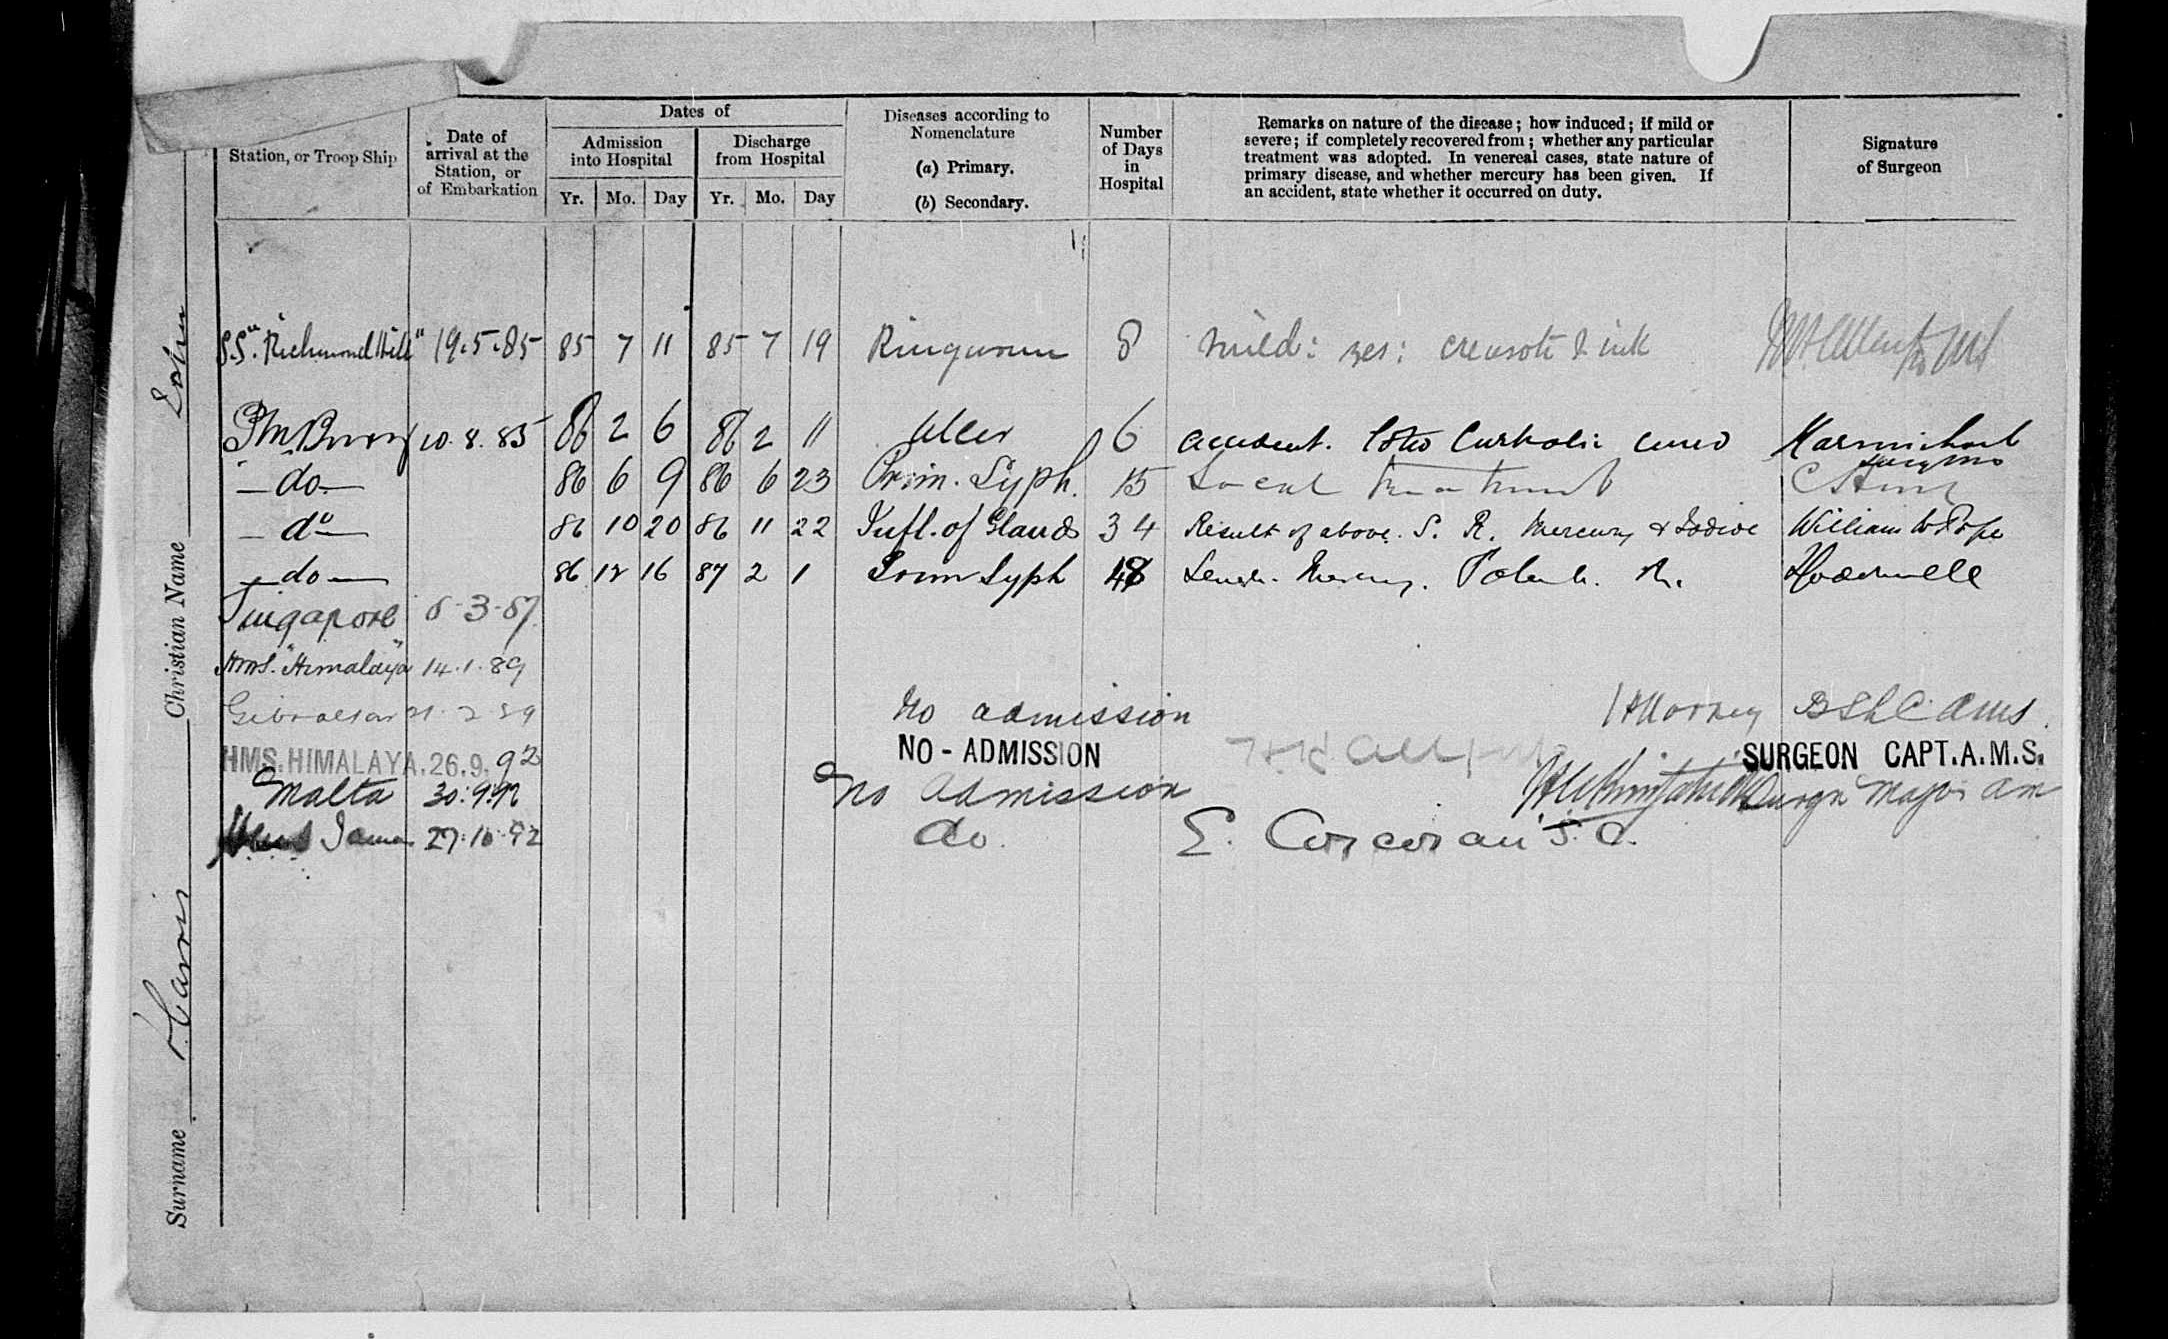 Station, or Troop Ship
Date of arrival at the Station, or of Embarkation
Dates of
Admission into Hospital
Discharge from Hospital
Yr. Mo. Day Yr. Mo. Day
Diseases according to Nomenclature
(a) Primary.
(b) Secondary.
Number of Days in Hospital
Remarks on nature of the disease; how induced; if mild or
severe; if completely recovered from; whether any particular
treatment was adopted. In venereal cases, state nature of
primary disease, and whether mercury has been given. If
an accident, state whether it occurred on duty.
Signature of Surgeon
S.S. "Richmond Hill" 19.5.85 85 7 11 85 7 19 Ringworm 8 Mild: yes: creasote & ink
10.8.85 86 2 6 86 2 11 Ulcer 6 accident. Carbolic
-do- 86 6 9 86 6 23 Prim. Syph. 15 Local treatment
-do- 86 10 20 86 11 22 Infl. of Glands 34 Result of above. S. R. Mercury & Iodide William W Pope
-do- 86 12 16 87 2 1 Syph 48 Mercury.
Singapore 8-3-87
HMS. "Himalaya" 14.1.89
Gibraltar 21.2.89 No admission AMS.
HMS. HIMALAYA. 26.9.92 NO - ADMISSION SURGEON CAPT. A.M.S.
Malta 30.9.92 No admission Surgn Major
27.10.92 do. E. Corcoran S.C.
Surname Christian Name John